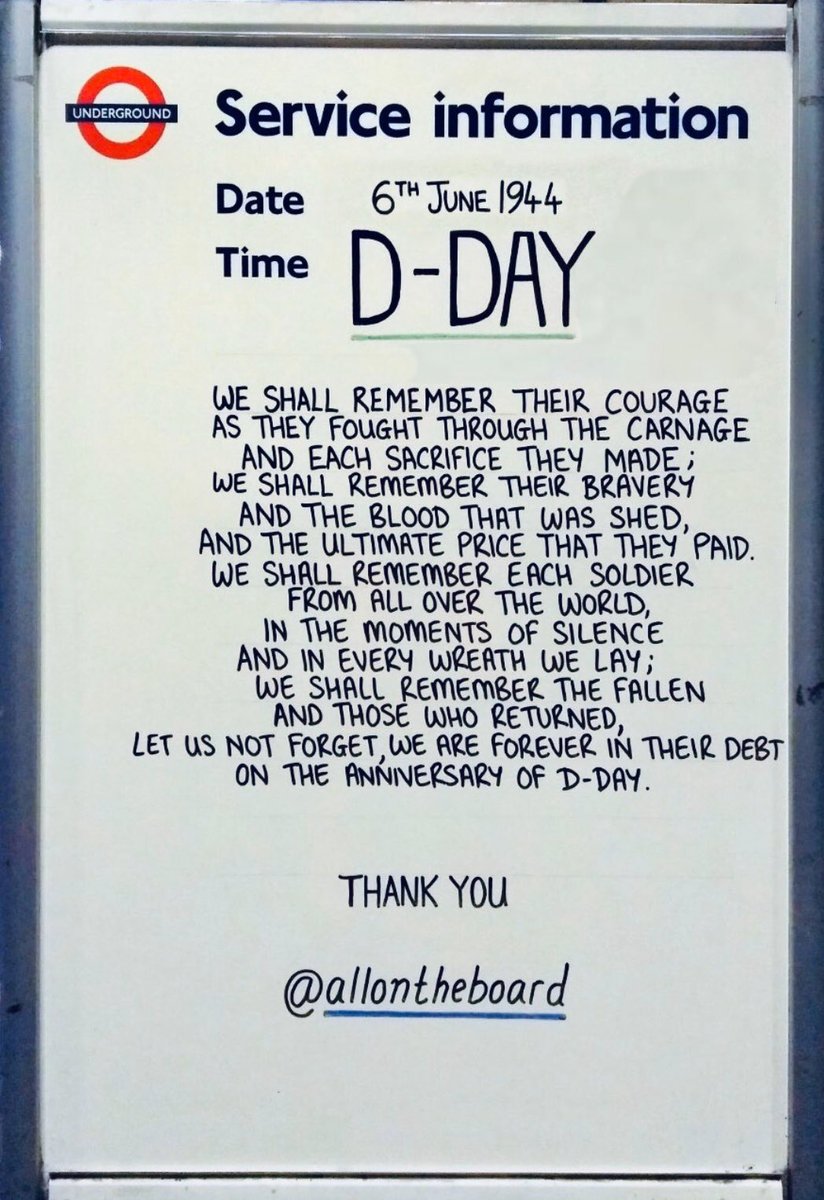 UNDERGROUND
Service information
Date 6TH JUNE 1944
Time D-DAY
WE SHALL REMEMBER THEIR COURAGE
AS THEY FOUGHT THROUGH THE CARNAGE
AND EACH SACRIFICE THEY MADE;
WE SHALL REMEMBER THEIR BRAVERY
AND THE BLOOD THAT WAS SHED,
AND THE ULTIMATE PRICE THAT THEY PAID.
WE SHALL REMEMBER EACH SOLDIER
FROM ALL OVER THE WORLD,
IN THE MOMENTS OF SILENCE
AND IN EVERY WREATH WE LAY;
WE SHALL REMEMBER THE FALLEN
AND THOSE WHO RETURNED,
LET US NOT FORGET, WE ARE FOREVER IN THEIR DEBT
ON THE ANNIVERSARY OF D-DAY.
THANK YOU
@allontheboard